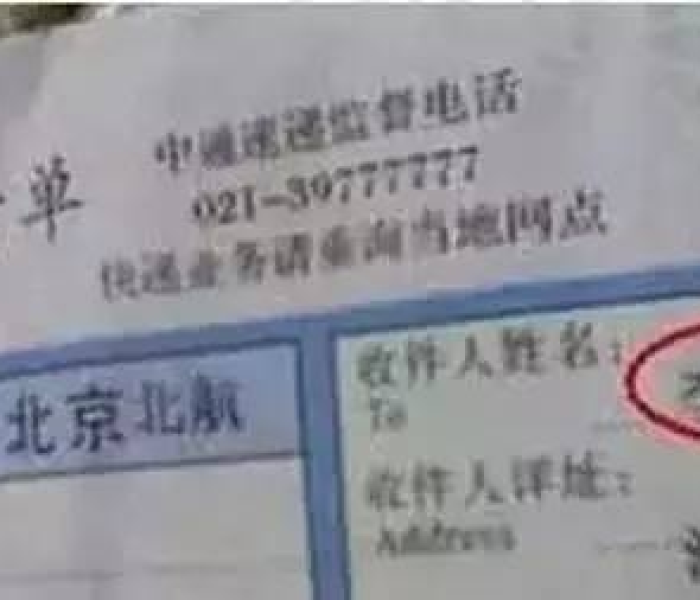 单
申通速递监督电话
021-39777777
快递业务请垂询当地网点
北京北航
收件人姓名:
To
收件人详址:
Address